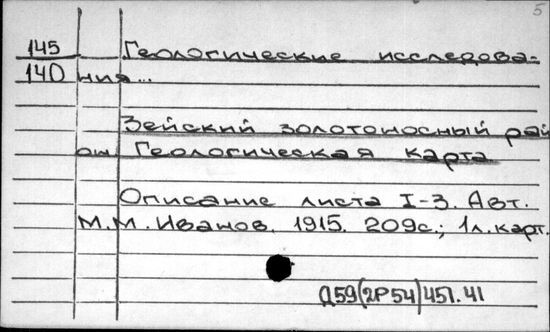 5
145 Геологические исследова-
140 ния...
Зейский золотоносный рай
он. Геологическая карта
Описание листа I-3. Авт.
М.М. Иванов. 1915. 209с.; 1л.карт.
Д59(2Р54)451.41